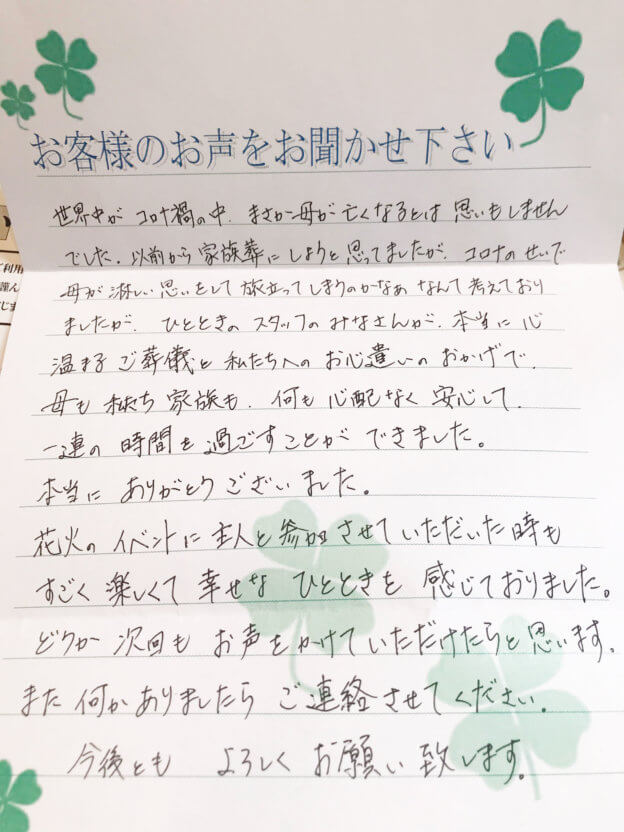 お客様のお声をお聞かせ下さい
世界中が コロナ禍の中、まさか母が亡くなるとは 思いもしません
でした。以前から 家族葬に しようと思ってましたが、コロナのせいで
母が 淋しい思いをして 旅立ってしまうのかなあ なんて 考えており
ましたが、ひとときの スタッフの みなさんが、本当に 心
温まる ご葬儀と 私たちへの お心遣いの おかげで、
母も 私たち 家族も、何も 心配なく 安心して、
一連の 時間を 過ごすことが できました。
本当に ありがとうございました。
花火の イベントに 主人と 参加させていただいた時も
すごく 楽しくて 幸せな ひとときを 感じておりました。
どうか 次回も お声をかけていただけたらと思います。
また 何か ありましたら ご連絡させてください。
今後とも よろしく お願い 致します。
ご利用
謹ん
じま